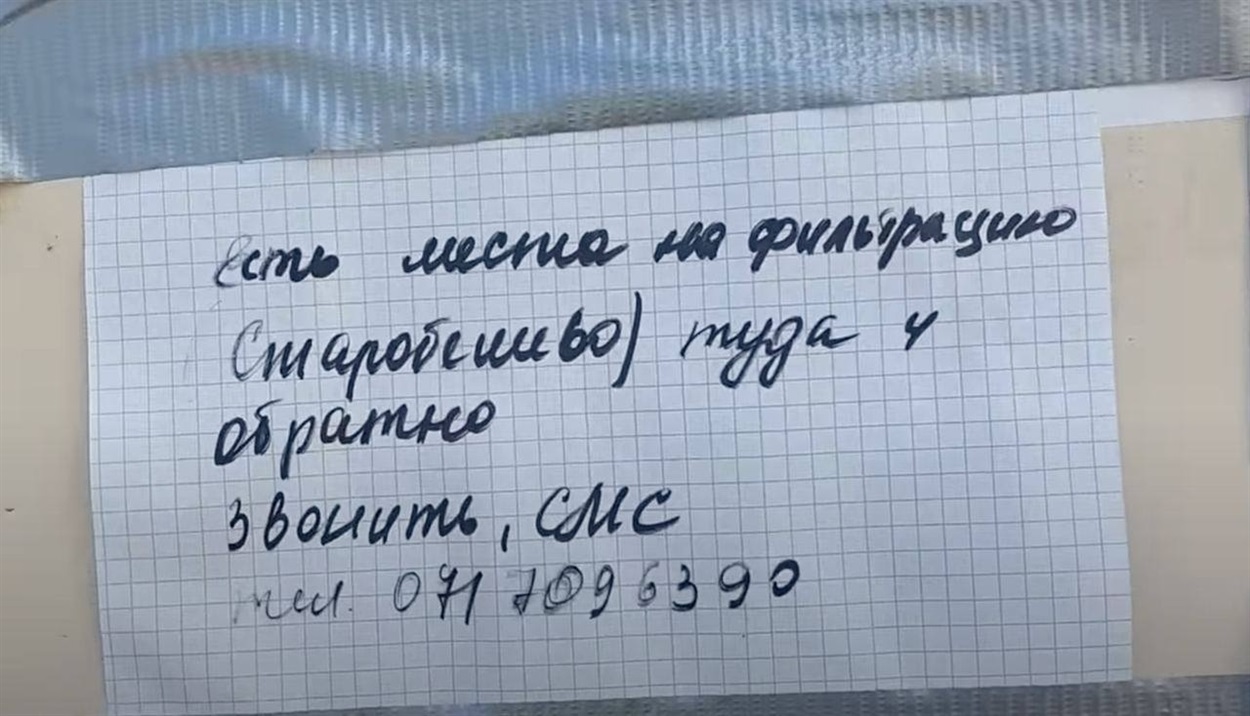 Есть места на фильтрацию
(Старобешево) туда и
обратно
Звонить, СМС
тел. 071 7096390